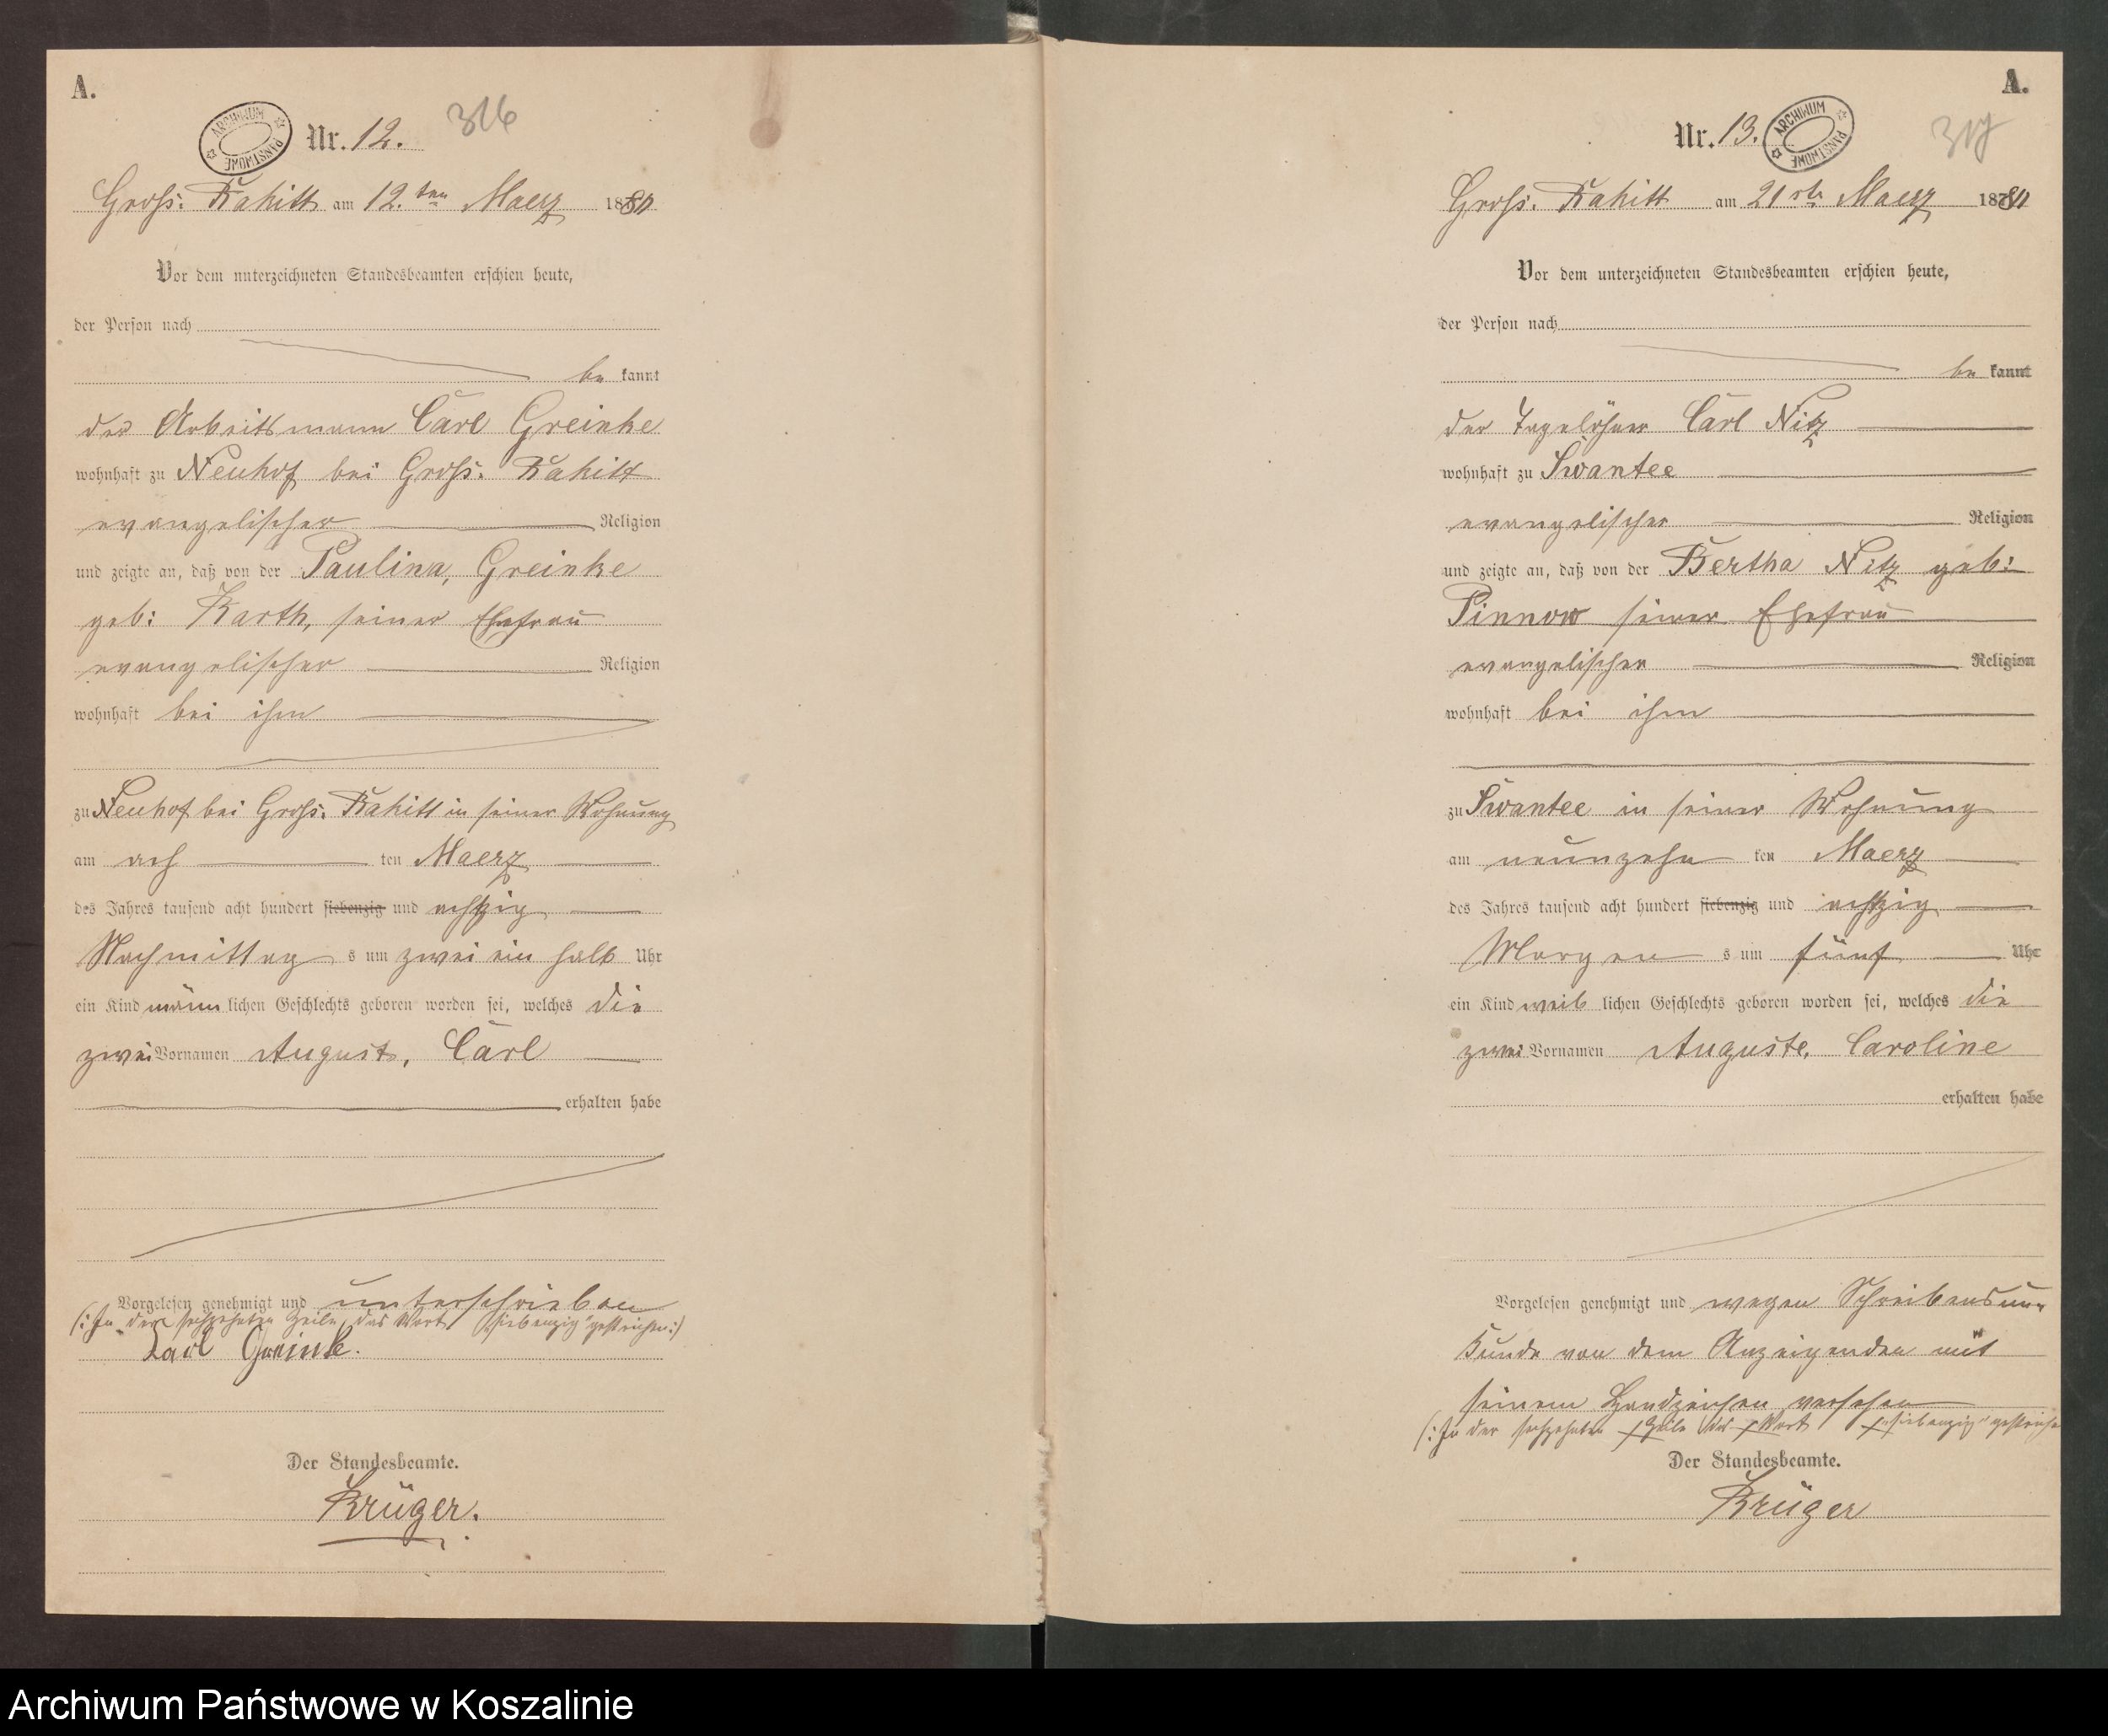 A.
Nr. 12.
316
ARCHIWUM PAŃSTWOWE
Gross: Rakitt am 12.ten Maerz 1880
Vor dem unterzeichneten Standesbeamten erschien heute,
der Person nach
be kannt
der Arbeitsmann Carl Greinke
wohnhaft zu Neuhof bei Gross: Rakitt
evangelischer Religion
und zeigte an, daß von der Paulina, Greinke
geb: Barth, seiner Ehefrau
evangelischer Religion
wohnhaft bei ihm
zu Neuhof bei Gross: Rakitt in seiner Wohnung
am ach ten Maerz
des Jahres tausend acht hundert siebenzig und achtzig
Nachmittag s um zwei ein halb Uhr
ein Kind männ lichen Geschlechts geboren worden sei, welches die
zwei Vornamen August, Carl
erhalten habe
Vorgelesen genehmigt und unterschrieben
(: In der sechzehnten Zeile das Wort „siebenzig" gestrichen :)
Karl Greinke.
Der Standesbeamte.
Krüger.
A.
Nr. 13.
ARCHIWUM PAŃSTWOWE
317
Gross: Rakitt am 21ste Maerz 1880
Vor dem unterzeichneten Standesbeamten erschien heute,
der Person nach
be kannt
der Tagelöhner Carl Nitz
wohnhaft zu Swantee
evangelischer Religion
und zeigte an, daß von der Bertha Nitz geb:
Pinnow seiner Ehefrau
evangelischer Religion
wohnhaft bei ihm
zu Swantee in seiner Wohnung
am neunzehn ten Maerz
des Jahres tausend acht hundert siebenzig und achtzig
Morgen s um fünf Uhr
ein Kind weib lichen Geschlechts geboren worden sei, welches die
zwei Vornamen Auguste, Caroline
erhalten habe
Vorgelesen genehmigt und wegen Schreibensun-
kunde von dem Anzeigenden mit
seinem Handzeichen versehen
(: In der sechzehnten Zeile das Wort „siebenzig" gestrichen
+ + +
Der Standesbeamte.
Krüger
Archiwum Państwowe w Koszalinie